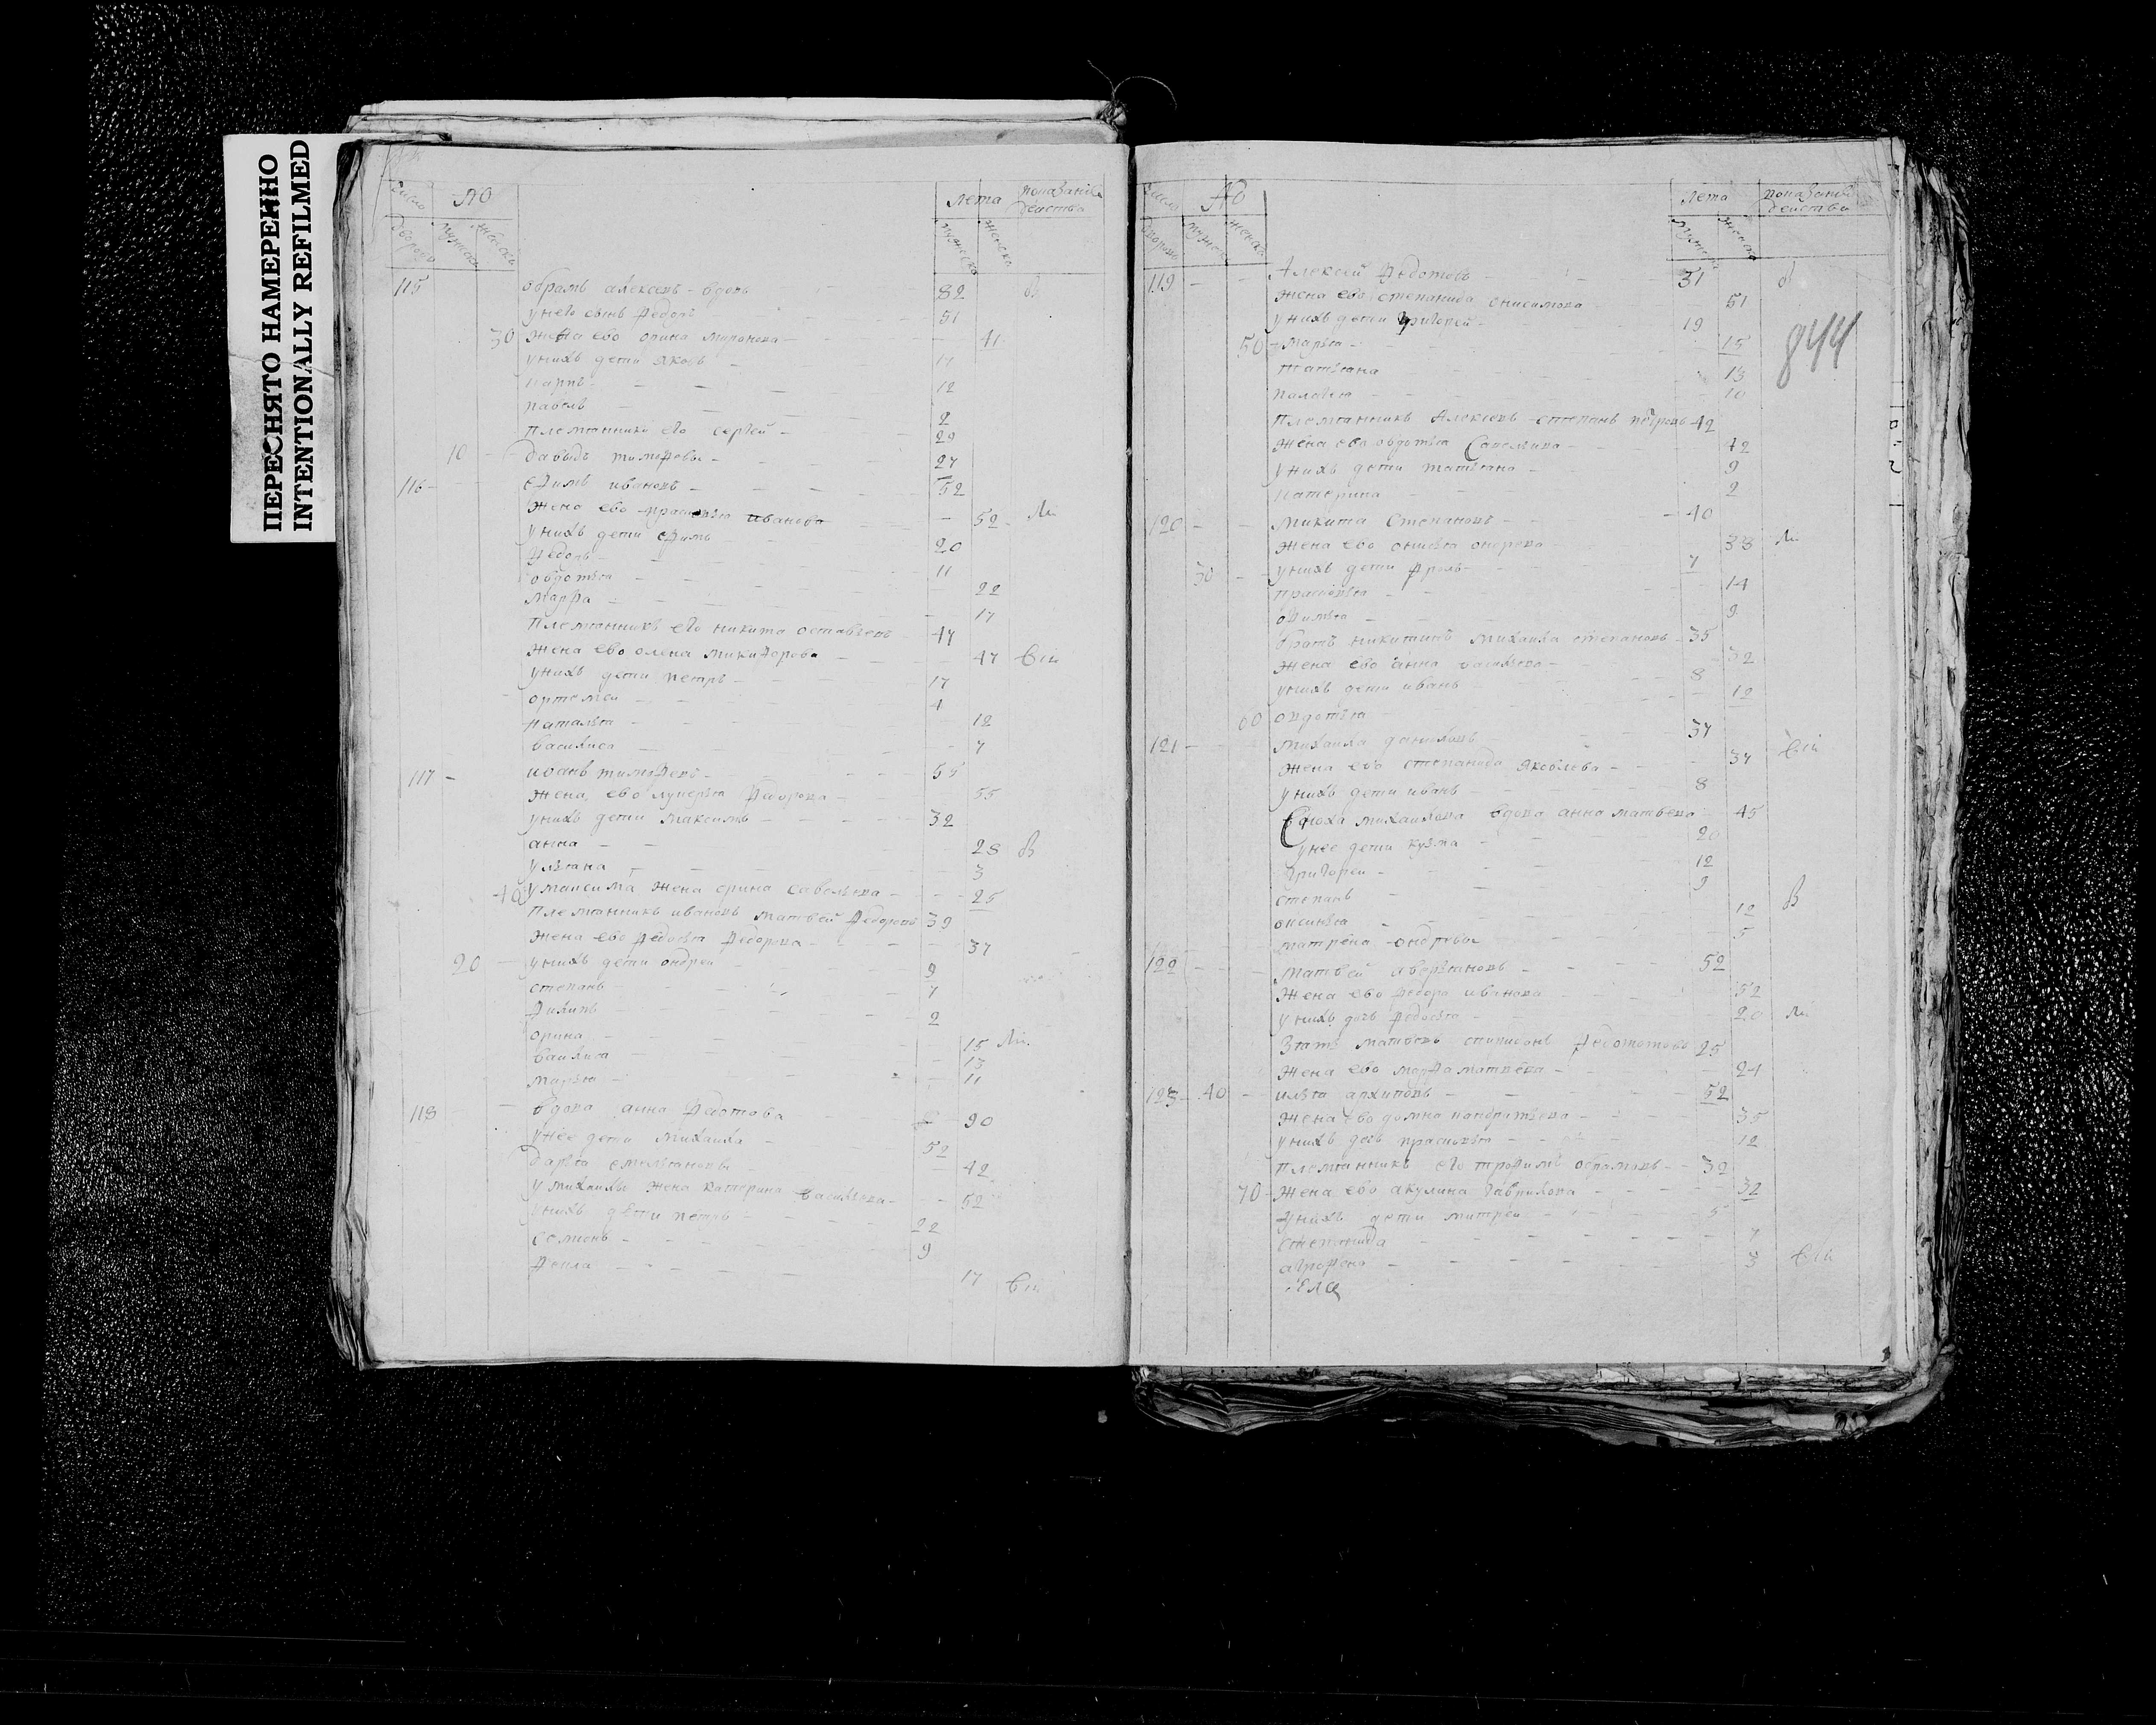 ПЕРЕСНЯТО НАМЕРЕННО
INTENTIONALLY REFILMED
число дворовъ мужеска женска лета мужеска женска показание действа
115 обрамъ алексевъ - вдовъ 82 в
у него сынъ Федоръ 51
30 жена ево орина миронова 41
у нихъ дети яковъ 17
карпъ 12
павелъ 2
племянники его сергей 29
10 давыдъ тимофевы 27
116 ефимъ ивановъ 52
жена ево прасковья иванова 52
у нихъ дети ефимъ 20
Федоръ 11
овдотья 22
марфа 17
племянникъ его никита остафьевъ 47
жена ево олена микифорова 47
у нихъ дети петръ 17
ортемей 4
наталья 12
василиса 7
117 иванъ тимофевъ 55
жена ево лукерья Федорова 55
у нихъ дети максимъ 32
анна 28 в
ульяна 3
40 у максима жена орина савельева 25
племянникъ ивановъ матвей Федоровъ 39
жена ево Федосья Федорова 37
20 у нихъ дети ондрей 9
степанъ 7
Филипъ 2
орина 15
василиса 13
марья 11
118 вдова анна Федотова 90
у нее дети михаила 52
дарья емельяновы 42
у михаилы жена катерина васильева 52
у нихъ дети петръ 22
семенъ 9
Фекла 17
число дворовъ мужеска женска лета мужеска женска показание действа
119 Алексей Федотовъ 51 в
жена ево степанида онисимова 51
у нихъ дети григорей 19
50 марья 15
844
татьяна 13
палагея 10
племянникъ Алексевъ степанъ петровъ 42
жена ево овдотья Савельева 42
у нихъ дети татьяна 9
катерина 2
120 микита степановъ 40
жена ево онисья ондрева 38
30 у нихъ дети Фролъ 7
прасковья 14
офимья 9
братъ никитинъ михаила степановъ 35
жена ево анна васильева 32
у нихъ дети иванъ 8
60 овдотья 12
121 михаила даниловъ 37
жена ево степанида яковлева 37
у нихъ дети иванъ 8
Сноха михаилова вдова анна матвева 45
у нее дети кузма 20
григорей 12
степанъ 9
оксинья 12 в
матрена ондревы 5
122 матвей аверьяновъ 52
жена ево Федора иванова 52
у нихъ дочь Федосья 20
зять матвевъ спиридонъ Федототовъ 25
жена ево марфа матвева 24
123 40 илья архиповъ 52
жена ево домна кондратьева 35
у нихъ дочь прасковья 12
племянникъ его трофимъ обрамовъ 32
70 жена ево акулина гаврилова 32
у нихъ дети митрей 5
степанида 7
агрофена 3